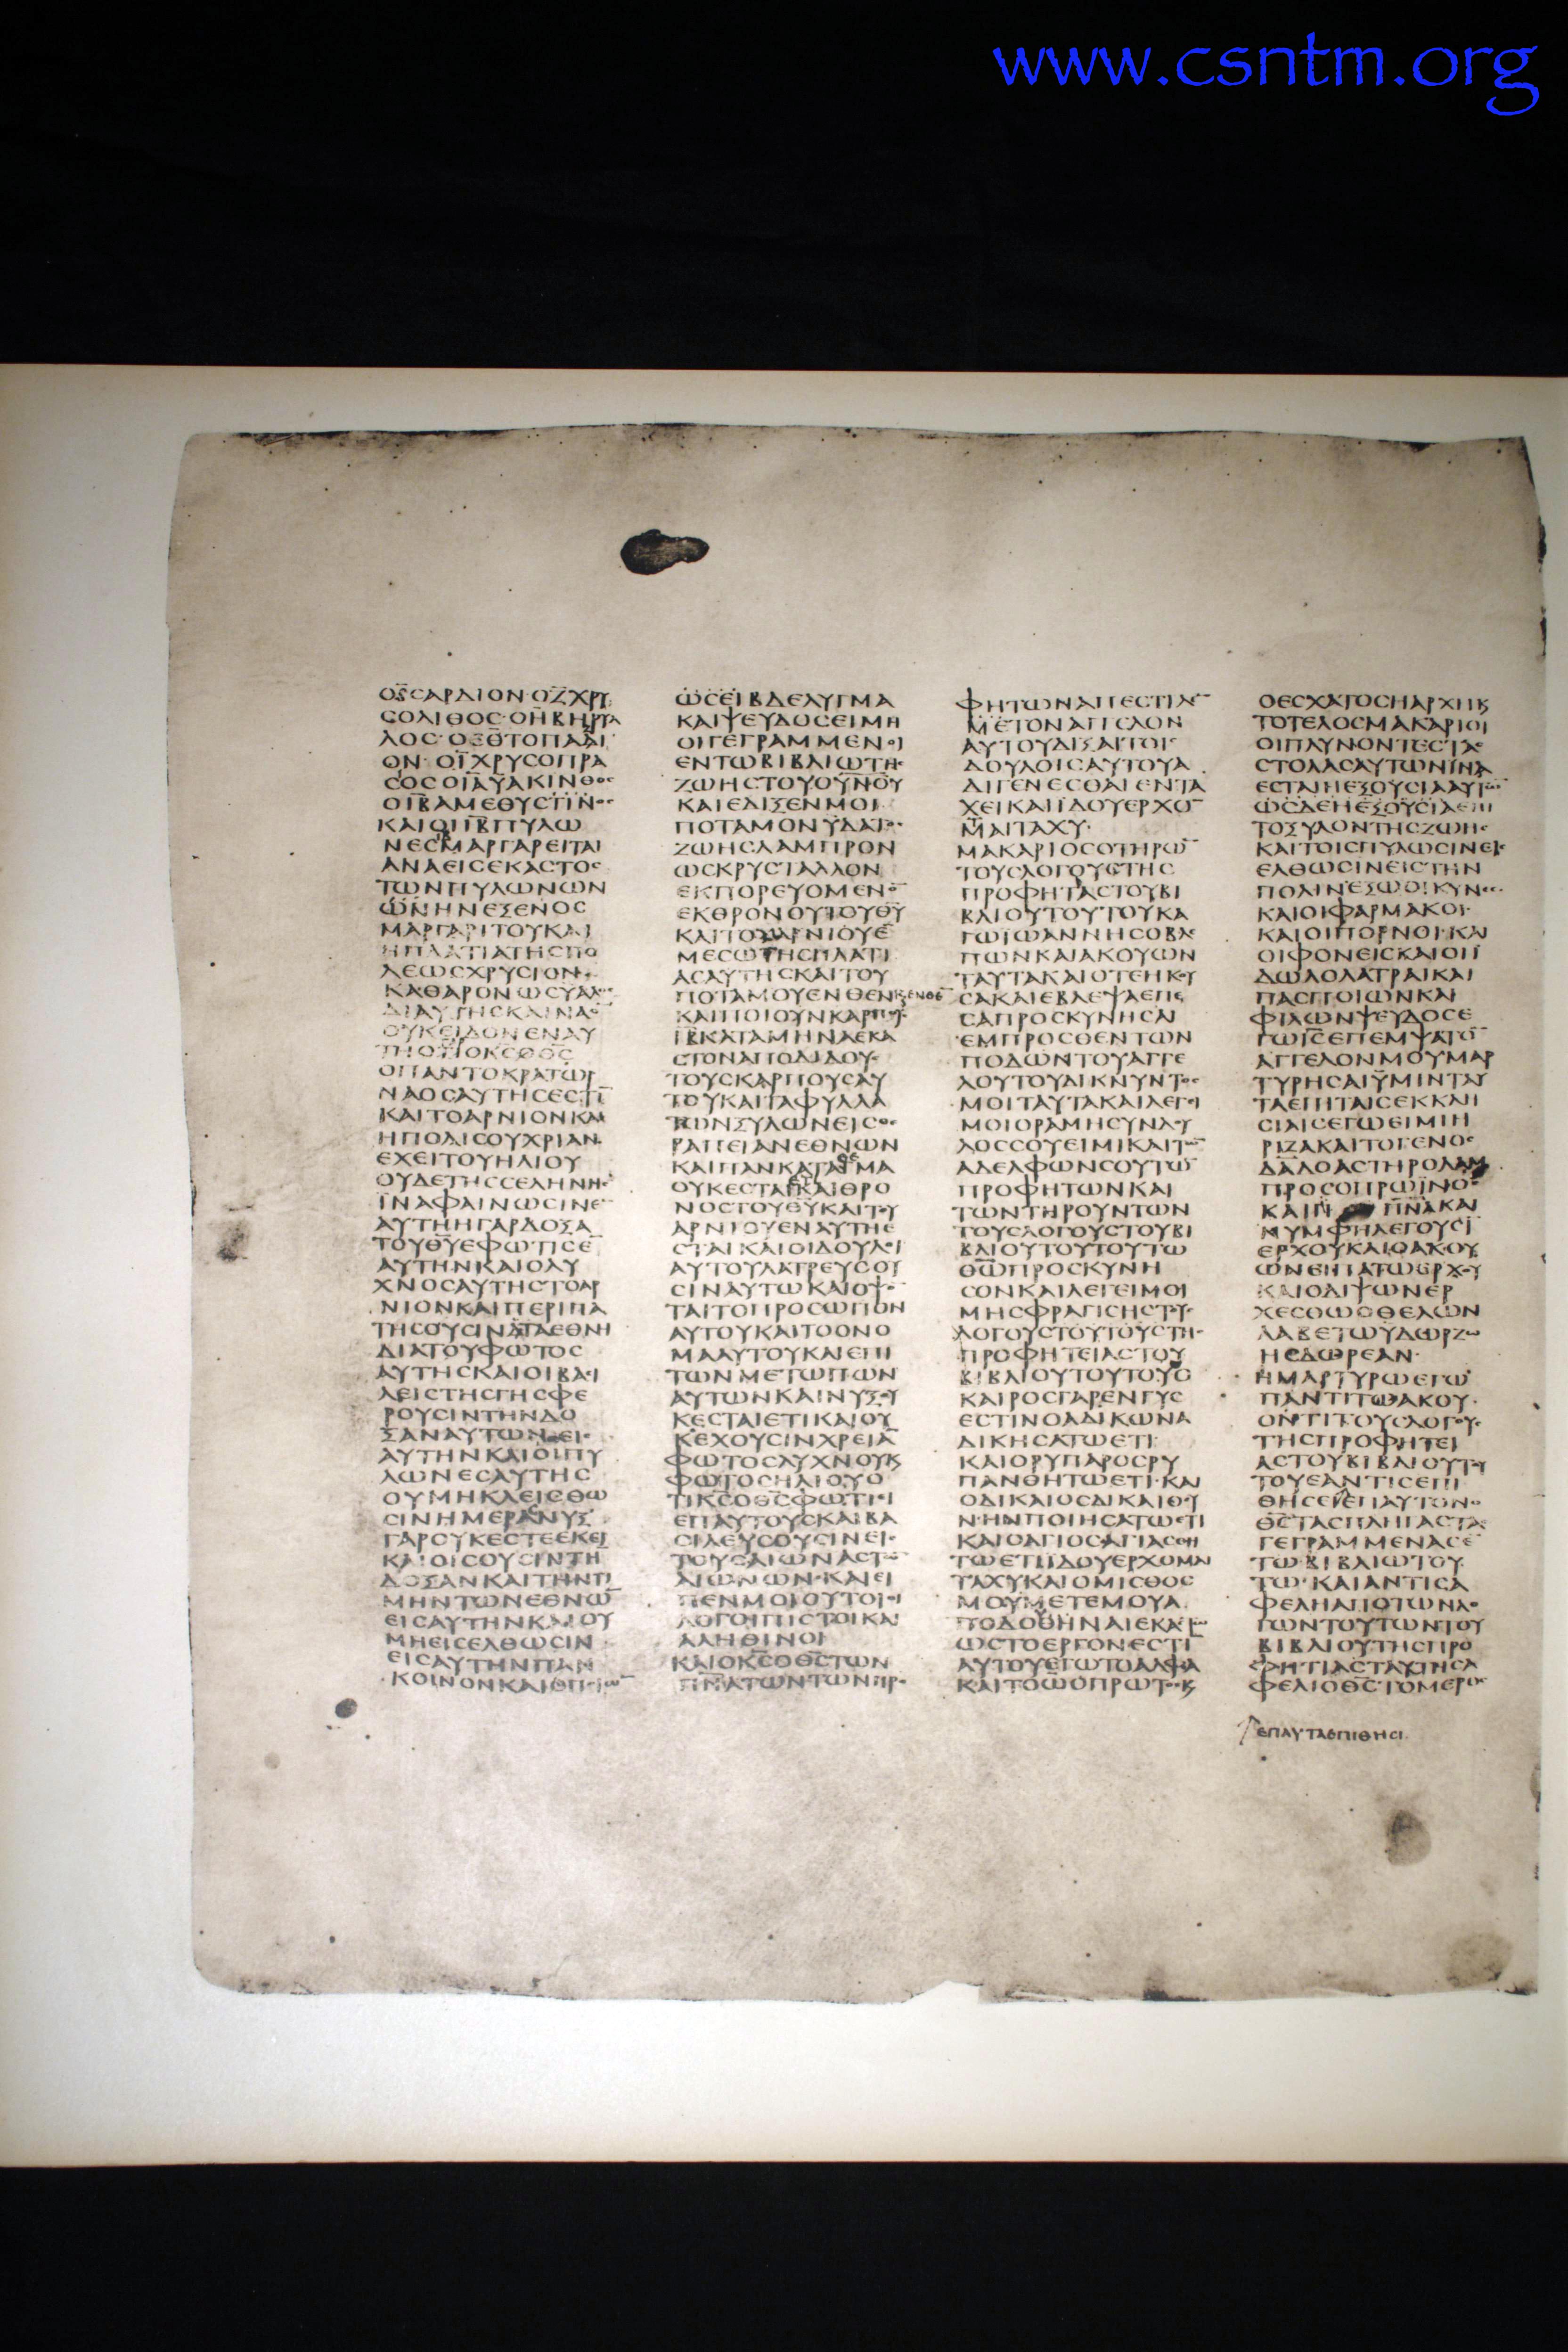 www.csntm.org
ΟϚ̅ϹΑΡΔΙΟΝ·ΟΖ̅ΧΡΥ
ϹΟΛΙΘΟϹ·ΟΗ̅ΒΗΡΥΛ
ΛΟϹ·
ΘΝ·ΟΙ̅ΧΡΥϹΟΠΡΑ
ϹΟϹΟΙΑ̅ΥΑΚΙΝΘΟϹ
ΟΙΒ̅ΑΜΕΘΥϹΤΙΝΟϹ
ΝΕϹΙΒΜΑΡΓΑΡΕΙΤΑΙ
ΑΝΑΕΙϹΕΚΑϹΤΟϹ
ΤΩΝΠΥΛΩΝΩΝ
ΩΝΗΝΕΞΕΝΟϹ
ΜΑΡΓΑΡΙΤΟΥΚΑΙ
ΗΠΛΑΤΙΑΤΗϹΠΟ
ΛΕΩϹΧΡΥϹΙΟΝ
ΚΑΘΑΡΟΝΩϹΥΑΛΟϹ
ΔΙΑΥΓΗϹΚΑΙΝΑΟ̅
ΟΥΚΕΙΔΟΝΕΝΑΥ
ΟΠΑΝΤΟΚΡΑΤΩΡ
ΝΑΟϹΑΥΤΗϹΕϹΤΙ̅
ΚΑΙΤΟΑΡΝΙΟΝΚΑΙ
ΗΠΟΛΙϹΟΥΧΡΙΑΝ
ΕΧΕΙΤΟΥΗΛΙΟΥ
ΟΥΔΕΤΗϹϹΕΛΗΝΗϹ
ΪΝΑΦΑΙΝΩϹΙΝΕ̅
ΑΥΤΗΗΓΑΡΔΟΞΑ
ΤΟΥΘ̅Υ̅ΕΦΩΤΙϹΕ̅
ΑΥΤΗΝΚΑΙΟΛΥ
ΧΝΟϹΑΥΤΗϹΤΟΑΡ
ΝΙΟΝΚΑΙΠΕΡΙΠΑ
ΤΗϹΟΥϹΙΝΤΑΕΘΝΗ
ΔΙΑΤΟΥΦΩΤΟϹ
ΑΥΤΗϹΚΑΙΟΙΒΑϹΙ
ΛΕΙϹΤΗϹΓΗϹΦΕ
ΡΟΥϹΙΝΤΗΝΔΟ
ΞΑΝΑΥΤΩΝΕΙϹ
ΑΥΤΗΝΚΑΙΟΙΠΥ
ΛΩΝΕϹΑΥΤΗϹ
ΟΥΜΗΚΛΕΙϹΘΩ
ϹΙΝΗΜΕΡΑϹΝΥΞ
ΓΑΡΟΥΚΕϹΤΕΕΚΕΙ
ΚΑΙΟΙϹΟΥϹΙΝΤΗ̅
ΔΟΞΑΝΚΑΙΤΗΝΤΙ
ΜΗΝΤΩΝΕΘΝΩ̅
ΕΙϹΑΥΤΗΝΚΑΙΟΥ
ΜΗΕΙϹΕΛΘΩϹΙΝ
ΕΙϹΑΥΤΗΝΠΑΝ
ΩϹΕΙΒΔΕΛΥΓΜΑ
ΚΑΙΨΕΥΔΟϹΕΙΜΗ
ΟΙΓΕΓΡΑΜΜΕΝΟΙ
ΕΝΤΩΒΙΒΛΙΩΤΗϹ
ΖΩΗϹΤΟΥΟΥΝΟΥ
ΚΑΙΕΔΙΞΕΝΜΟΙ
ΠΟΤΑΜΟΝΥΔΑΤΟϹ
ΖΩΗϹΛΑΜΠΡΟΝ
ΩϹΚΡΥϹΤΑΛΛΟΝ
ΕΚΠΟΡΕΥΟΜΕΝΟ̅
ΜΕϹΩΤΗϹΠΛΑΤΙ
ΑϹΑΥΤΗϹΚΑΙΤΟΥ
ΠΟΤΑΜΟΥΕΝΘΕΝ
ΚΑΙΠΟΙΟΥΝΚΑΡΠΟΥϹ
ΙΒ̅ΚΑΤΑΜΗΝΑΕΚΑ
ϹΤΟΝΑΠΟΔΙΔΟΥϹ
ΤΟΥϹΚΑΡΠΟΥϹΑΥ
ΤΟΥΚΑΙΤΑΦΥΛΛΑ
ΤΩΝΞΥΛΩΝΕΙϹΘΕ
ΡΑΠΕΙΑΝΕΘΝΩΝ
ΝΟϹΤΟΥΘ̅Υ̅ΚΑΙΤΟΥ
ΑΡΝΙΟΥΕΝΑΥΤΗΕ
ϹΤΑΙΚΑΙΟΙΔΟΥΛΟΙ
ΑΥΤΟΥΛΑΤΡΕΥϹΟΥ
ϹΙΝΑΥΤΩΚΑΙΟΨΟ̅
ΤΑΙΤΟΠΡΟϹΩΠΟΝ
ΑΥΤΟΥΚΑΙΤΟΟΝΟ
ΜΑΑΥΤΟΥΚΑΙΕΠΙ
ΤΩΝΜΕΤΩΠΩΝ
ΑΥΤΩΝΚΑΙΝΥΞΟΥ
ΚΕϹΤΑΙΕΤΙΚΑΙΟΥ
ΚΕΧΟΥϹΙΝΧΡΕΙΑ̅
ΦΩΤΟϹΛΥΧΝΟΥΚϏ
ΦΩΤΟϹΗΛΙΟΥΟ
ΤΙΚ̅Ϲ̅ΟΘ̅Ϲ̅ΦΩΤΙΕΙ
ΕΠΑΥΤΟΥϹΚΑΙΒΑ
ϹΙΛΕΥϹΟΥϹΙΝΕΙϹ
ΤΟΥϹΑΙΩΝΑϹΤΩ̅
ΑΙΩΝΩΝ·ΚΑΙΕΙ
ΠΕΝΜΟΙΟΥΤΟΙΟΙ
ΛΟΓΟΙΠΙϹΤΟΙΚΑΙ
ΑΛΗΘΙΝΟΙ
ΚΑΙΟΚ̅Ϲ̅ΟΘ̅Ϲ̅ΤΩΝ
Π̅Ν̅Α̅ΤΩΝΤΩΝΠΡΟ
ΦΗΤΩΝΑΠΕϹΤΙΛΕ̅
ΜΕΤΟΝΑΓΓΕΛΟΝ
ΑΥΤΟΥΔΙΞΑΙΤΟΙϹ
ΔΟΥΛΟΙϹΑΥΤΟΥΑ
ΔΙΓΕΝΕϹΘΑΙΕΝΤΑ
ΧΕΙΚΑΙΪΔΟΥΕΡΧΟ
ΜΑΙΤΑΧΥ·
ΜΑΚΑΡΙΟϹΟΤΗΡΩ̅
ΤΟΥϹΛΟΓΟΥϹΤΗϹ
ΠΡΟΦΗΤΑϹΤΟΥΒΙ
ΒΛΙΟΥΤΟΥΤΟΥΚΑ
ΓΩΪΩΑΝΝΗϹΟΒΛΕ
ΠΩΝΚΑΙΑΚΟΥΩΝ
ΤΑΥΤΑΚΑΙΟΤΕΗΚΟΥ
ϹΑΚΑΙΕΒΛΕΨΑΕΠΕ
ϹΑΠΡΟϹΚΥΝΗϹΑΙ
ΕΜΠΡΟϹΘΕΝΤΩΝ
ΠΟΔΩΝΤΟΥΑΓΓΕ
ΛΟΥΤΟΥΔΙΚΝΥΝΤΟϹ
ΜΟΙΤΑΥΤΑΚΑΙΛΕΓΕΙ
ΜΟΙΟΡΑΜΗϹΥΝΔΟΥ
ΛΟϹϹΟΥΕΙΜΙΚΑΙΤΩ̅
ΑΔΕΛΦΩΝϹΟΥΤΩ̅
ΠΡΟΦΗΤΩΝΚΑΙ
ΤΩΝΤΗΡΟΥΝΤΩΝ
ΤΟΥϹΛΟΓΟΥϹΤΟΥΒΙ
ΒΛΙΟΥΤΟΥΤΟΥΤΩ
Θ̅Ω̅ΠΡΟϹΚΥΝΗ
ϹΟΝΚΑΙΛΕΓΕΙΜΟΙ
ΜΗϹΦΡΑΓΙϹΗϹΤΟΥϹ
ΛΟΓΟΥϹΤΟΥΤΟΥϹΤΗϹ
ΠΡΟΦΗΤΕΙΑϹΤΟΥ
ΒΙΒΛΙΟΥΤΟΥΤΟΥΟ
ΚΑΙΡΟϹΓΑΡΕΝΓΥϹ
ΕϹΤΙΝΟΑΔΙΚΩΝΑ
ΔΙΚΗϹΑΤΩΕΤΙ
ΚΑΙΟΡΥΠΑΡΟϹΡΥ
ΠΑΝΘΗΤΩΕΤΙ·ΚΑΙ
ΟΔΙΚΑΙΟϹΔΙΚΑΙΟϹΥ
ΝΗΝΠΟΙΗϹΑΤΩΕΤΙ
ΚΑΙΟΑΓΙΟϹΑΓΙΑϹΘΗ
ΤΩΕΤΙΪΔΟΥΕΡΧΟΜΑΙ
ΤΑΧΥΚΑΙΟΜΙϹΘΟϹ
ΜΟΥΜΕΤΕΜΟΥΑ
ΩϹΤΟΕΡΓΟΝΕϹΤΙ̅
ΑΥΤΟΥΕΓΩΤΟΑΛΦΑ
ΚΑΙΤΟΩΟΠΡΩΤΟϹΚϏ
ΟΕϹΧΑΤΟϹΗΑΡΧΗΚϏ
ΤΟΤΕΛΟϹΜΑΚΑΡΙΟΙ
ΟΙΠΛΥΝΟΝΤΕϹΤΑϹ
ϹΤΟΛΑϹΑΥΤΩΝΪΝΑ
ΕϹΤΑΙΗΕΞΟΥϹΙΑΑΥΤΩ̅
ΤΟΞΥΛΟΝΤΗϹΖΩΗϹ
ΚΑΙΤΟΙϹΠΥΛΩϹΙΝΕΙϹ
ΕΛΘΩϹΙΝΕΙϹΤΗΝ
ΠΟΛΙΝΕΞΩΟΙΚΥΝΕϹ
ΚΑΙΟΙΦΑΡΜΑΚΟΙ·
ΚΑΙΟΙΠΟΡΝΟΙ·ΚΑΙ
ΟΙΦΟΝΕΙϹΚΑΙΟΙΪ
ΔΩΛΟΛΑΤΡΑΙΚΑΙ
ΠΑϹΠΟΙΩΝΚΑΙ
ΦΙΛΩΝΨΕΥΔΟϹΕ
ΓΩΙ̅Ϲ̅ΕΠΕΜΨΑΤΟ̅
ΑΓΓΕΛΟΝΜΟΥΜΑΡ
ΤΥΡΗϹΑΙΫΜΙΝΤΑΥ
ΤΑΕΠΙΤΑΙϹΕΚΚΛΗ
ϹΙΑΙϹΕΓΩΕΙΜΙΗ
ΡΙΖΑΚΑΙΤΟΓΕΝΟϹ
ΔΑΔΟΑϹΤΗΡΟΛΑΜ
ΠΡΟϹΟΠΡΩΪΝΟϹ
ΝΥΜΦΗΛΕΓΟΥϹΙ̅
ΕΡΧΟΥΚΑΙΟΑΚΟΥ
ΩΝΕΙΠΑΤΩΕΡΧΟΥ
ΚΑΙΟΔΙΨΩΝΕΡ
ΧΕϹΘΩΟΘΕΛΩΝ
ΛΑΒΕΤΩΥΔΩΡΖΩ
ΗϹΔΩΡΕΑΝ·
ΜΑΡΤΥΡΩΕΓΩ
ΠΑΝΤΙΤΩΑΚΟΥ
ΟΝΤΙΤΟΥϹΛΟΓΟΥϹ
ΤΗϹΠΡΟΦΗΤΕΙ
ΑϹΤΟΥΒΙΒΛΙΟΥΤΟΥ
ΤΟΥΕΑΝΤΙϹΕΠΙ
Θ̅Ϲ̅ΤΑϹΠΛΗΓΑϹΤΑϹ
ΓΕΓΡΑΜΜΕΝΑϹΕ̅
ΤΩΒΙΒΛΙΩΤΟΥ
ΤΩ·ΚΑΙΑΝΤΙϹΑ
ΦΕΛΗΑΠΟΤΩΝΛΟ
ΓΩΝΤΟΥΤΩΝΤΟΥ
ΒΙΒΛΙΟΥΤΗϹΠΡΟ
ΦΗΤΙΑϹΤΑΥΤΗϹΑ
ΦΕΛΙΟΘ̅Ϲ̅ΤΟΜΕΡΟϹ
ΕΠΑΥΤΑΕΠΙΘΗϹΙ